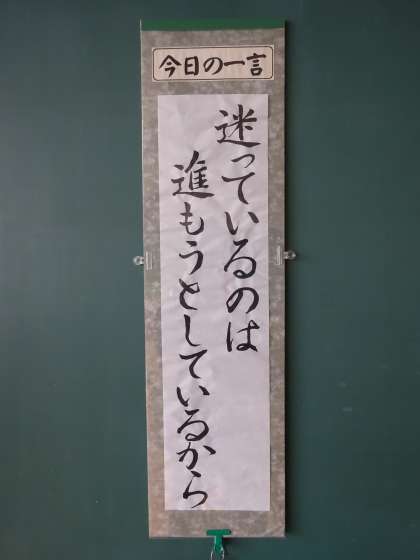 今日の一言
迷っているのは
進もうとしているから